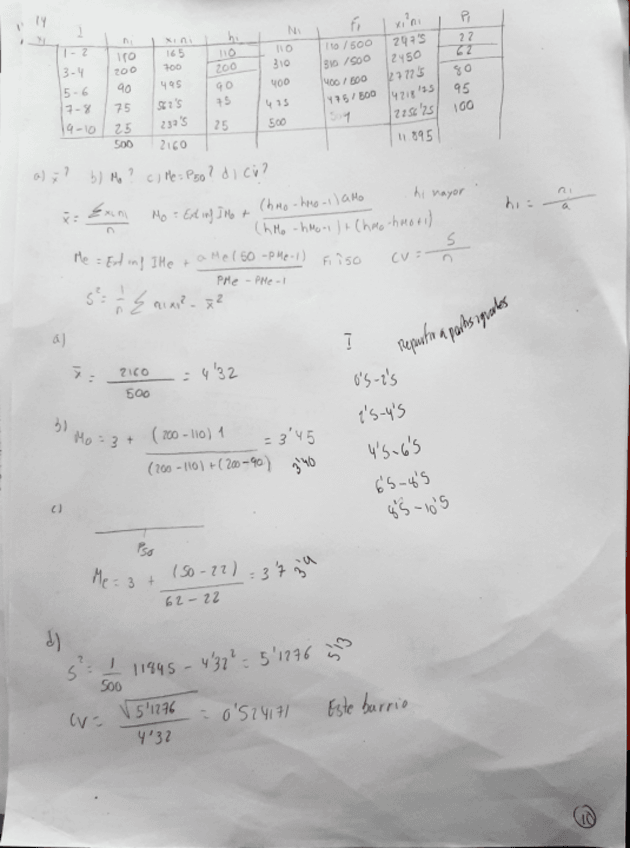 14
xi I ni xi ni hi Ni Fi xi²ni Pi
1-2 110 165 110 110 110/500 247'5 22
3-4 200 700 200 310 310/500 2450 62
5-6 90 495 90 400 400/500 2722'5 80
7-8 75 562'5 75 475 475/500 4218'75 95
9-10 25 237'5 25 500 2256'25 100
500 2160 11895
a) x̄? b) Mo? c) Me=P50? d) CV?
x̄ = Σxini / n Mo = Ext inf IMo + (hMo - hMo-1) aMo / (hMo - hMo-1) + (hMo - hMo+1) hi mayor hi = ni / a
Me = Ext inf IMe + a Me (50 - PMe-1) / PMe - PMe-1 Fi ≥ 50 CV = S / n
S² = 1/n Σ ni xi² - x̄²
a) I Repartir a partes iguales
x̄ = 2160 / 500 = 4'32 0'5-2'5
2'5-4'5
b) Mo = 3 + (200-110) 1 / (200-110) + (200-90) = 3'45 3'40 4'5-6'5
6'5-8'5
c) 8'5-10'5
P50
Me = 3 + (50-22) / 62-22 = 3'7
d)
S² = 1/500 11895 - 4'32² = 5'1276 5'13
CV = √5'1276 / 4'32 = 0'524171 Este barrio